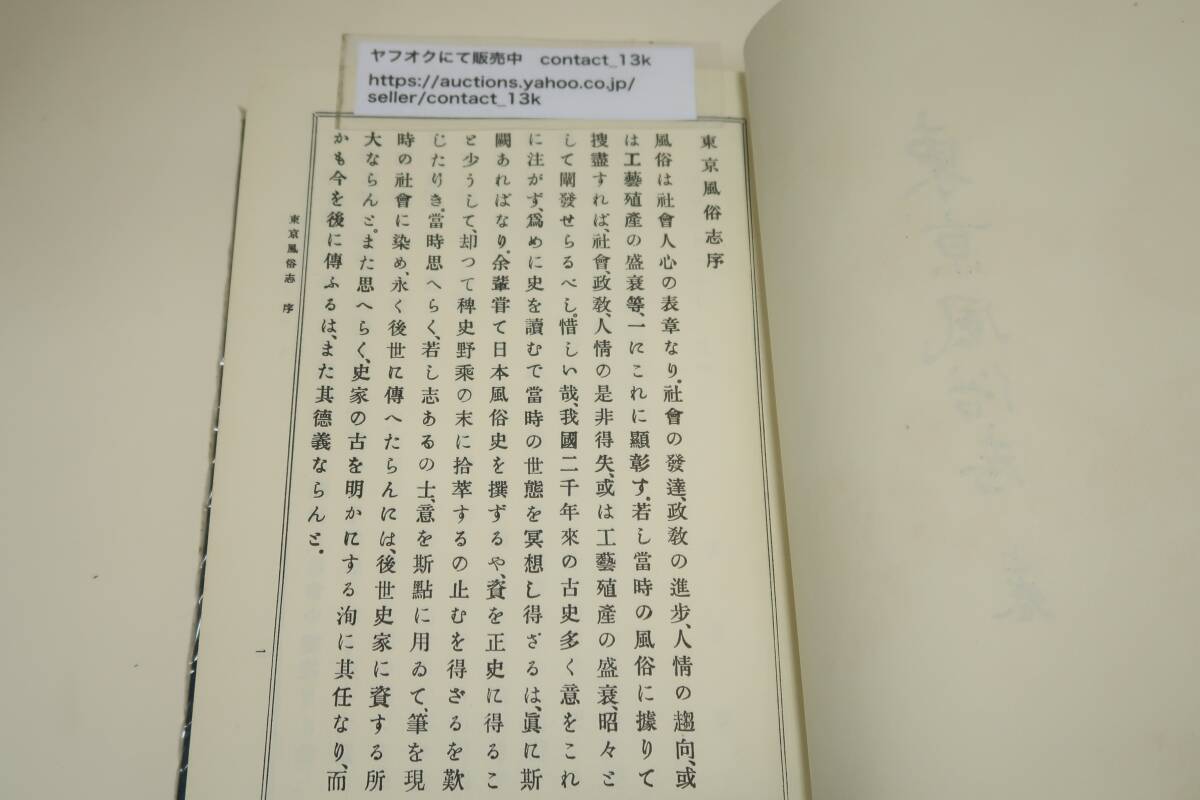 ヤフオクにて販売中 contact_13k
https://auctions.yahoo.co.jp/
seller/contact_13k
東京風俗志序
風俗は社會人心の表章なり。社會の發達、政敎の進步、人情の趨向、或
は工藝殖產の盛衰等、一にこれに顯彰す。若し當時の風俗に據りて
搜盡すれば、社會、政敎、人情の是非得失、或は工藝殖產の盛衰、昭々と
して闡發せらるべし。惜しい哉、我國二千年來の古史多く意をこれ
に注がず、爲めに史を讀むで當時の世態を冥想し得ざるは、眞に斯
闕あればなり。余輩嘗て日本風俗史を撰ずるや、資を正史に得るこ
と少うして、却つて稗史野乘の末に拾萃するの止むを得ざるを歎
じたりき。當時思へらく、若し志あるの士、意を斯點に用ゐて、筆を現
時の社會に染め、永く後世に傳へたらんには、後世史家に資する所
大ならんと。また思へらく、史家の古を明かにする洵に其任なり、而
かも今を後に傳ふるは、また其德義ならんと。
東京風俗志 序
一